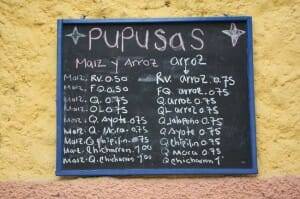 PUPUSAS
Maiz y Arroz arroz
Maiz. RV. 0.50 RV. arroz. 0.75
Maiz. FQ. 0.50 FQ. arroz. 0.75
Maiz. Q. 0.75 Q. arroz. 0.75
Maiz. QL. 0.75 QL. arroz. 0.75
Maiz. Q. Ayote. 0.75 Q. Jalapeño 0.75
Maiz. Q. Mora. 0.75 Q. Ayote 0.75
Maiz. Q. chipilin. 0.75 Q. chipilin. 0.75
Maiz. chicharron. 1.00 Q. Mora 0.75
Maiz. Q. chicharron 1.00 Q chicharron 1